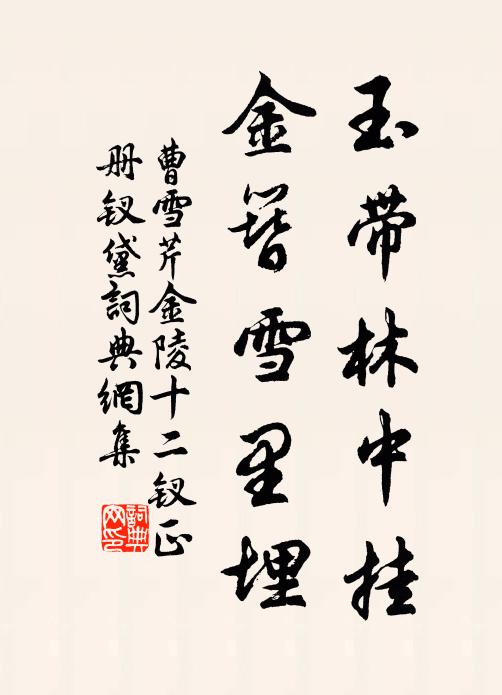 玉带林中挂
金簪雪里埋
曹雪芹金陵十二钗正
册钗黛詞典網集
詞典
网印